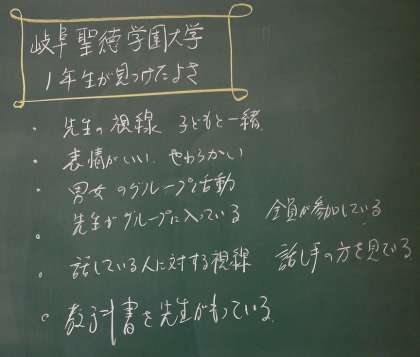 岐阜聖徳学園大学
1年生が見つけたよさ
・先生の視線 子どもと一緒
・表情がいい やわらかい
・男女のグループ活動
・先生がグループに入っている 全員が参加している
・話している人に対する視線 話し手の方を見ている
・教科書を先生がもっている